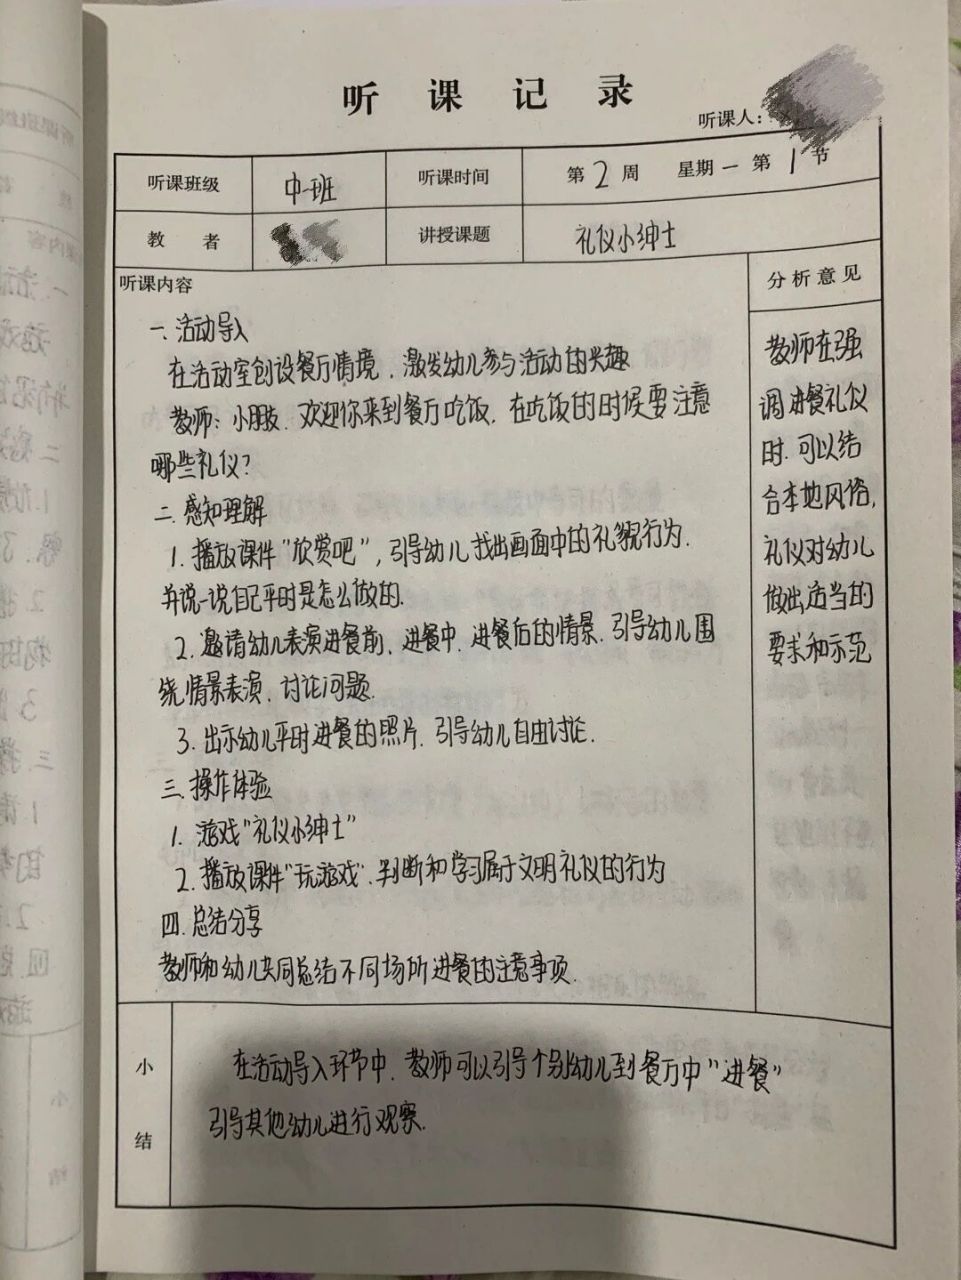 听课记录
听课人：
听课班级 中一班 听课时间 第2周 星期一 第1节
教者 讲授课题 礼仪小绅士
听课内容
一、活动导入
在活动室创设餐厅情境，激发幼儿参与活动的兴趣
教师：小朋友，欢迎你来到餐厅吃饭，在吃饭的时候要注意
哪些礼仪？
二、感知理解
1. 播放课件“欣赏吧”，引导幼儿找出画面中的礼貌行为.
并说一说自己平时是怎么做的.
2. 邀请幼儿表演进餐前、进餐中、进餐后的情景，引导幼儿围
绕情景表演，讨论问题.
3. 出示幼儿平时进餐的照片，引导幼儿自由讨论.
三、操作体验
1. 游戏“礼仪小绅士”
2. 播放课件“玩游戏”，判断和学习属于文明礼仪的行为
四、总结分享
教师和幼儿共同总结不同场所进餐的注意事项.
分析意见
教师在强
调进餐礼仪
时，可以结
合本地风俗，
礼仪对幼儿
做出适当的
要求和示范
小结
在活动导入环节中，教师可以引导个别幼儿到餐厅中“进餐”
引导其他幼儿进行观察.